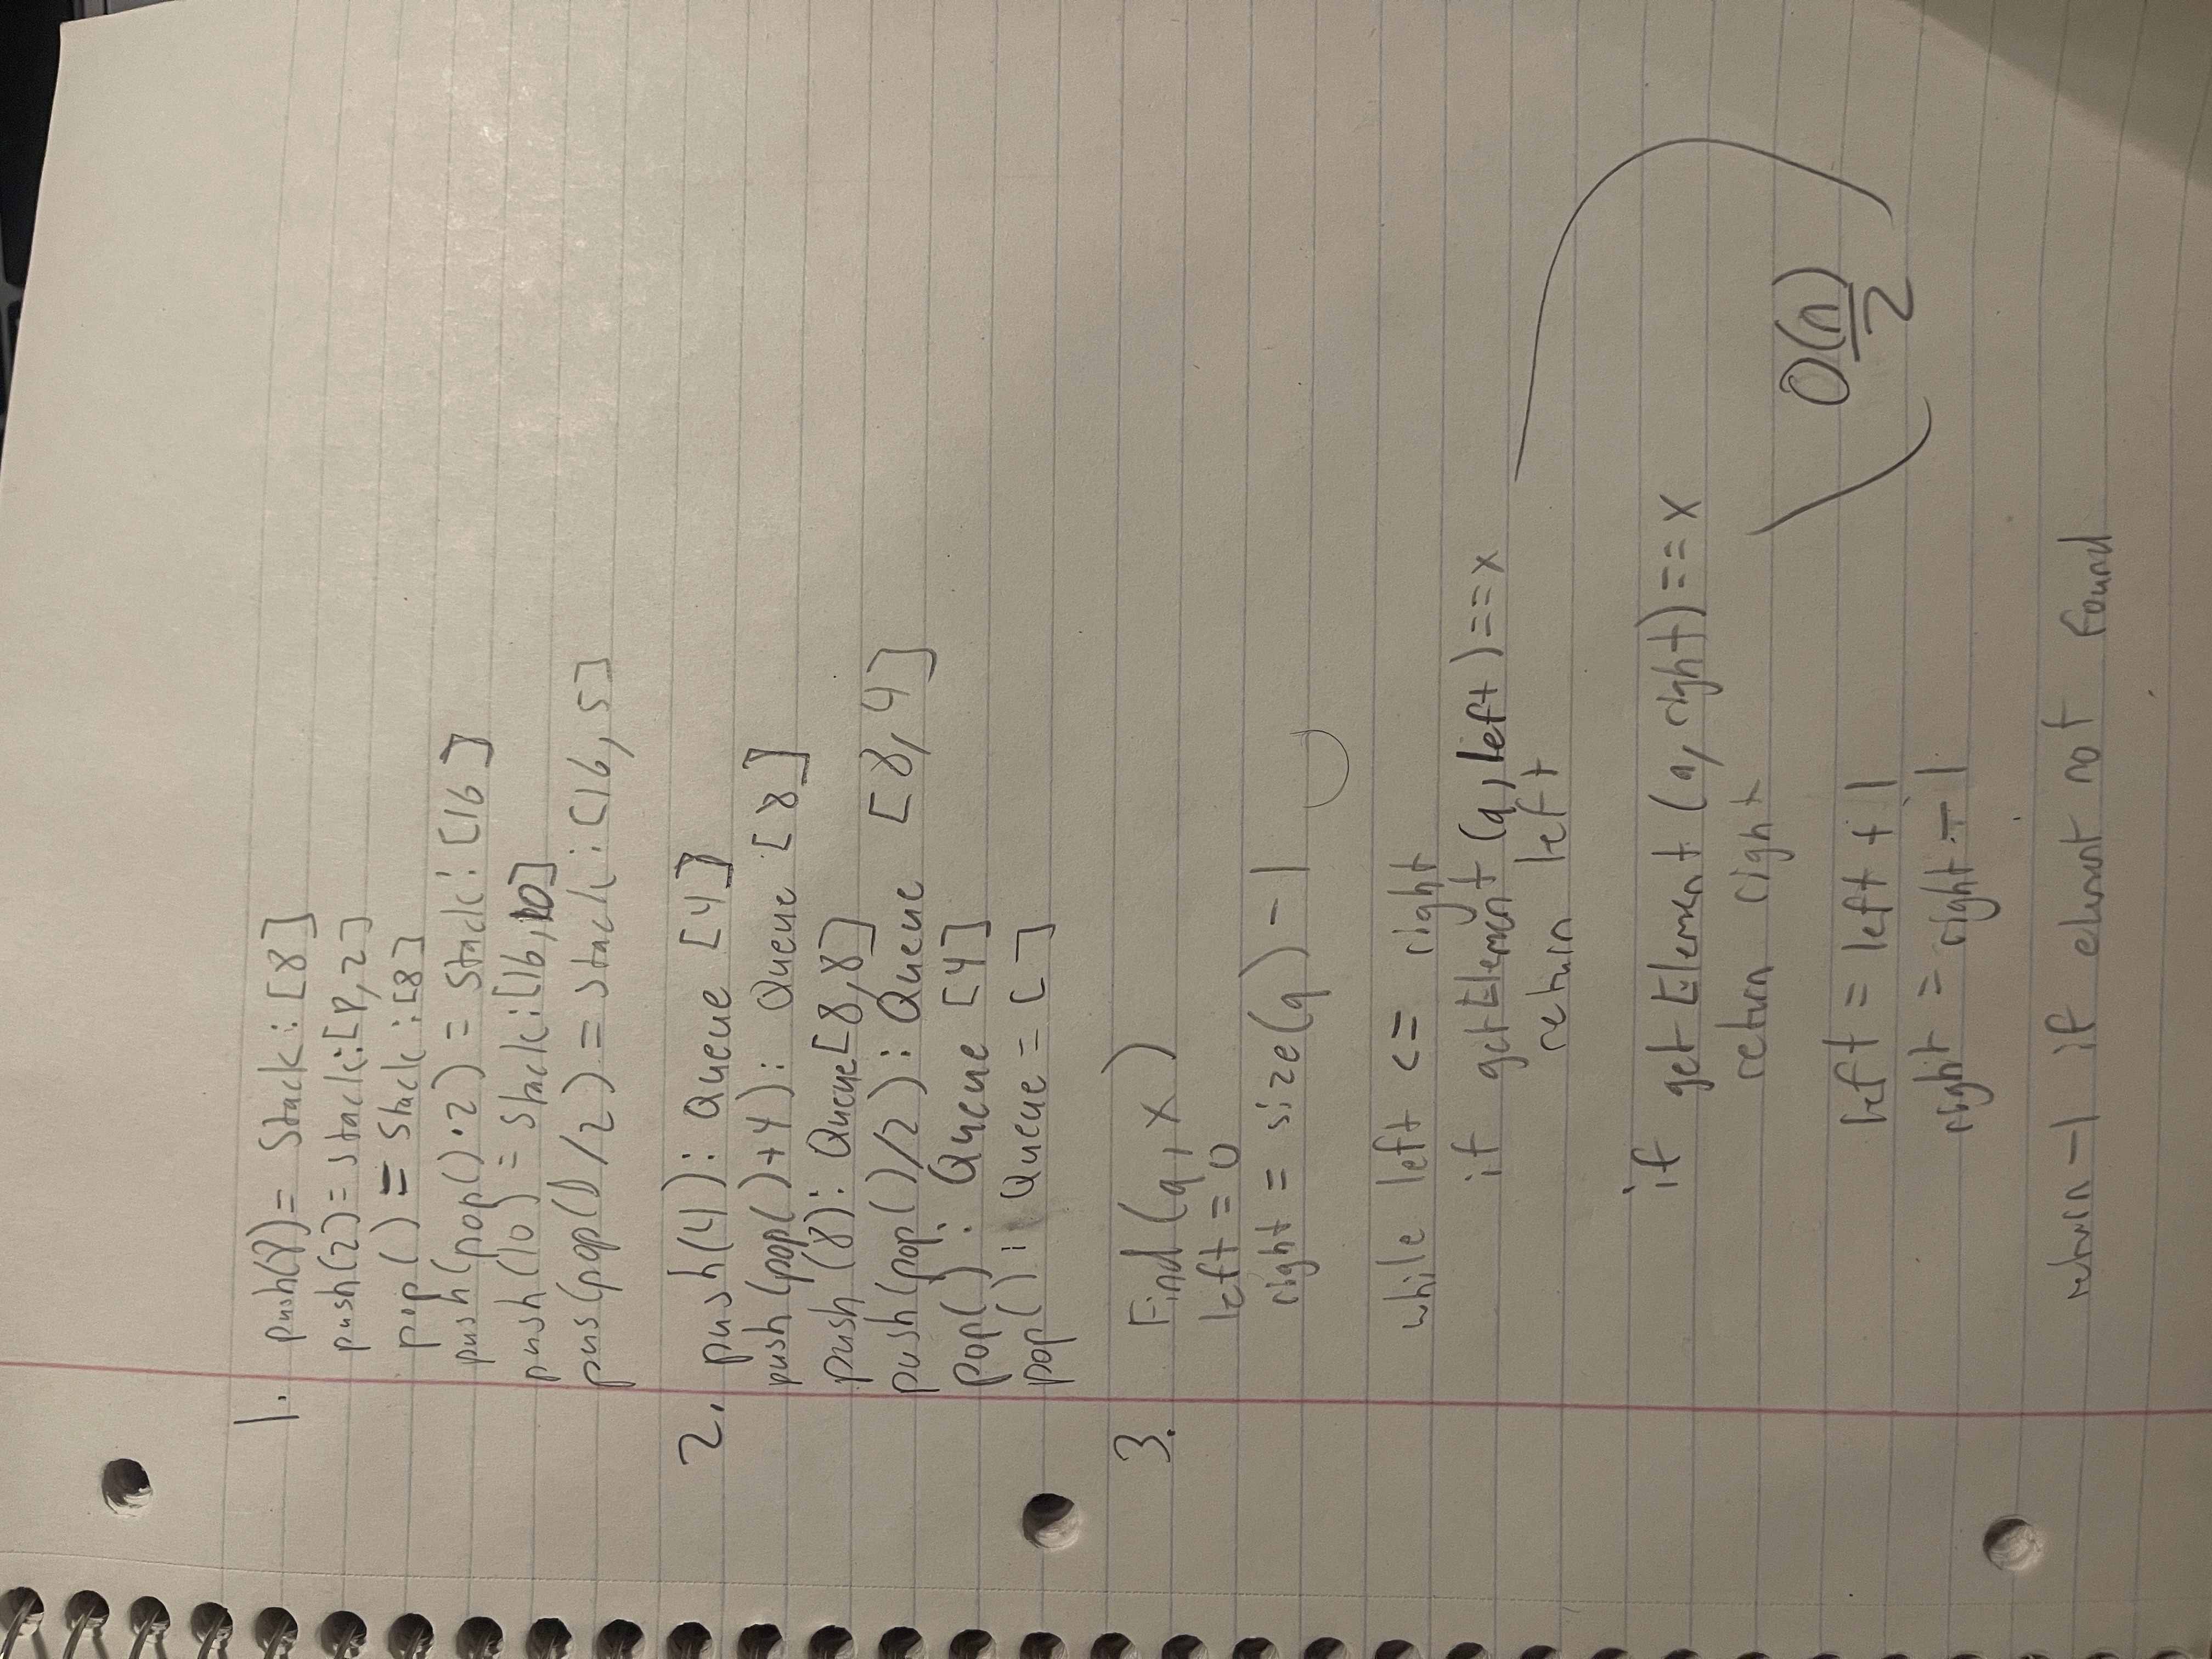 1. push(8)= Stack: [8]
push(2)= Stack:[8,2]
pop() = Stack:[8]
push(pop()·2) = Stack: [16]
push(10) = Stack:[16,10]
pus(pop()/2) = Stack: [16, 5]
2. push(4): Queue [4]
push(pop()+4): Queue [8]
push (8): Queue[8,8]
push(pop()/2): Queue [8,4]
pop(): Queue [4]
pop(): Queue = [ ]
3. Find (q, x)
left = 0
right = size(q) - 1
while left <= right
if getElement (q, left)==x
return left
if getElement (q, right)==x
return right
O(n)
2
left = left + 1
right = right - 1
return -1 if element not found